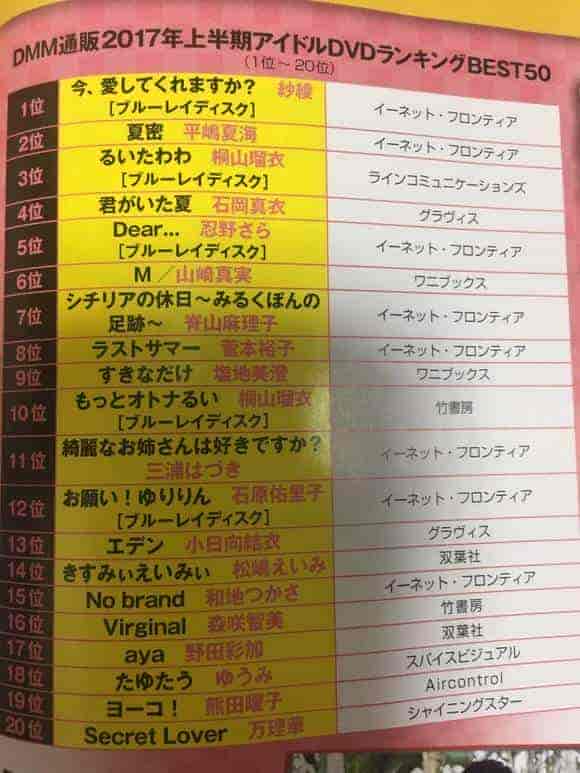 DMM通販2017年上半期アイドルDVDランキングBEST50
(1位～20位)
1位 今、愛してくれますか? 紗綾 イーネット・フロンティア
[ブルーレイディスク]
2位 夏密 平嶋夏海 イーネット・フロンティア
3位 るいたわわ 桐山瑠衣 ラインコミュニケーションズ
[ブルーレイディスク]
4位 君がいた夏 石岡真衣 グラヴィス
5位 Dear... 忍野さら イーネット・フロンティア
[ブルーレイディスク]
6位 M／山崎真実 ワニブックス
7位 シチリアの休日～みるくぽんの イーネット・フロンティア
足跡～ 脊山麻理子
8位 ラストサマー 菅本裕子 イーネット・フロンティア
9位 すきなだけ 塩地美澄 ワニブックス
10位 もっとオトナるい 桐山瑠衣 竹書房
[ブルーレイディスク]
11位 綺麗なお姉さんは好きですか? イーネット・フロンティア
三浦はづき
12位 お願い!ゆりりん 石原佑里子 イーネット・フロンティア
[ブルーレイディスク]
13位 エデン 小日向結衣 グラヴィス
14位 きすみぃえいみぃ 松嶋えいみ 双葉社
15位 No brand 和地つかさ イーネット・フロンティア
16位 Virginal 森咲智美 竹書房
17位 aya 野田彩加 双葉社
18位 たゆたう ゆうみ スパイスビジュアル
19位 ヨーコ! 熊田曜子 Aircontrol
20位 Secret Lover 万理華 シャイニングスター